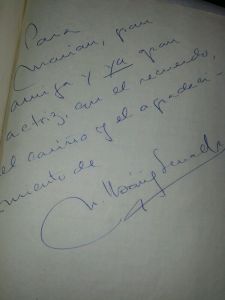 Para
Marian, gran
amiga y ya gran
actriz, con el recuerdo,
el cariño y el agradeci-
miento de